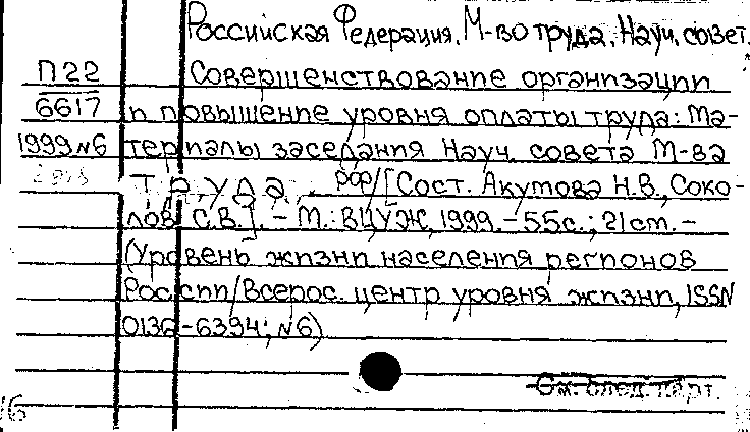 Российская Федерация. М-во труда. Науч. совет.
П22
6617
1999 №6
Совершенствование организации
и повышение уровня оплаты труда: Ма-
териалы заседания Науч. совета М-ва
труда РФ/[Сост. Акутова Н.В., Соко-
лов С.В.]. - М.: ВЦУЖ, 1999. - 55с.; 21см. -
(Уровень жизни населения регионов
России/Всерос. центр уровня жизни, ISSN
0136-6394; №6)
См. след. карт.